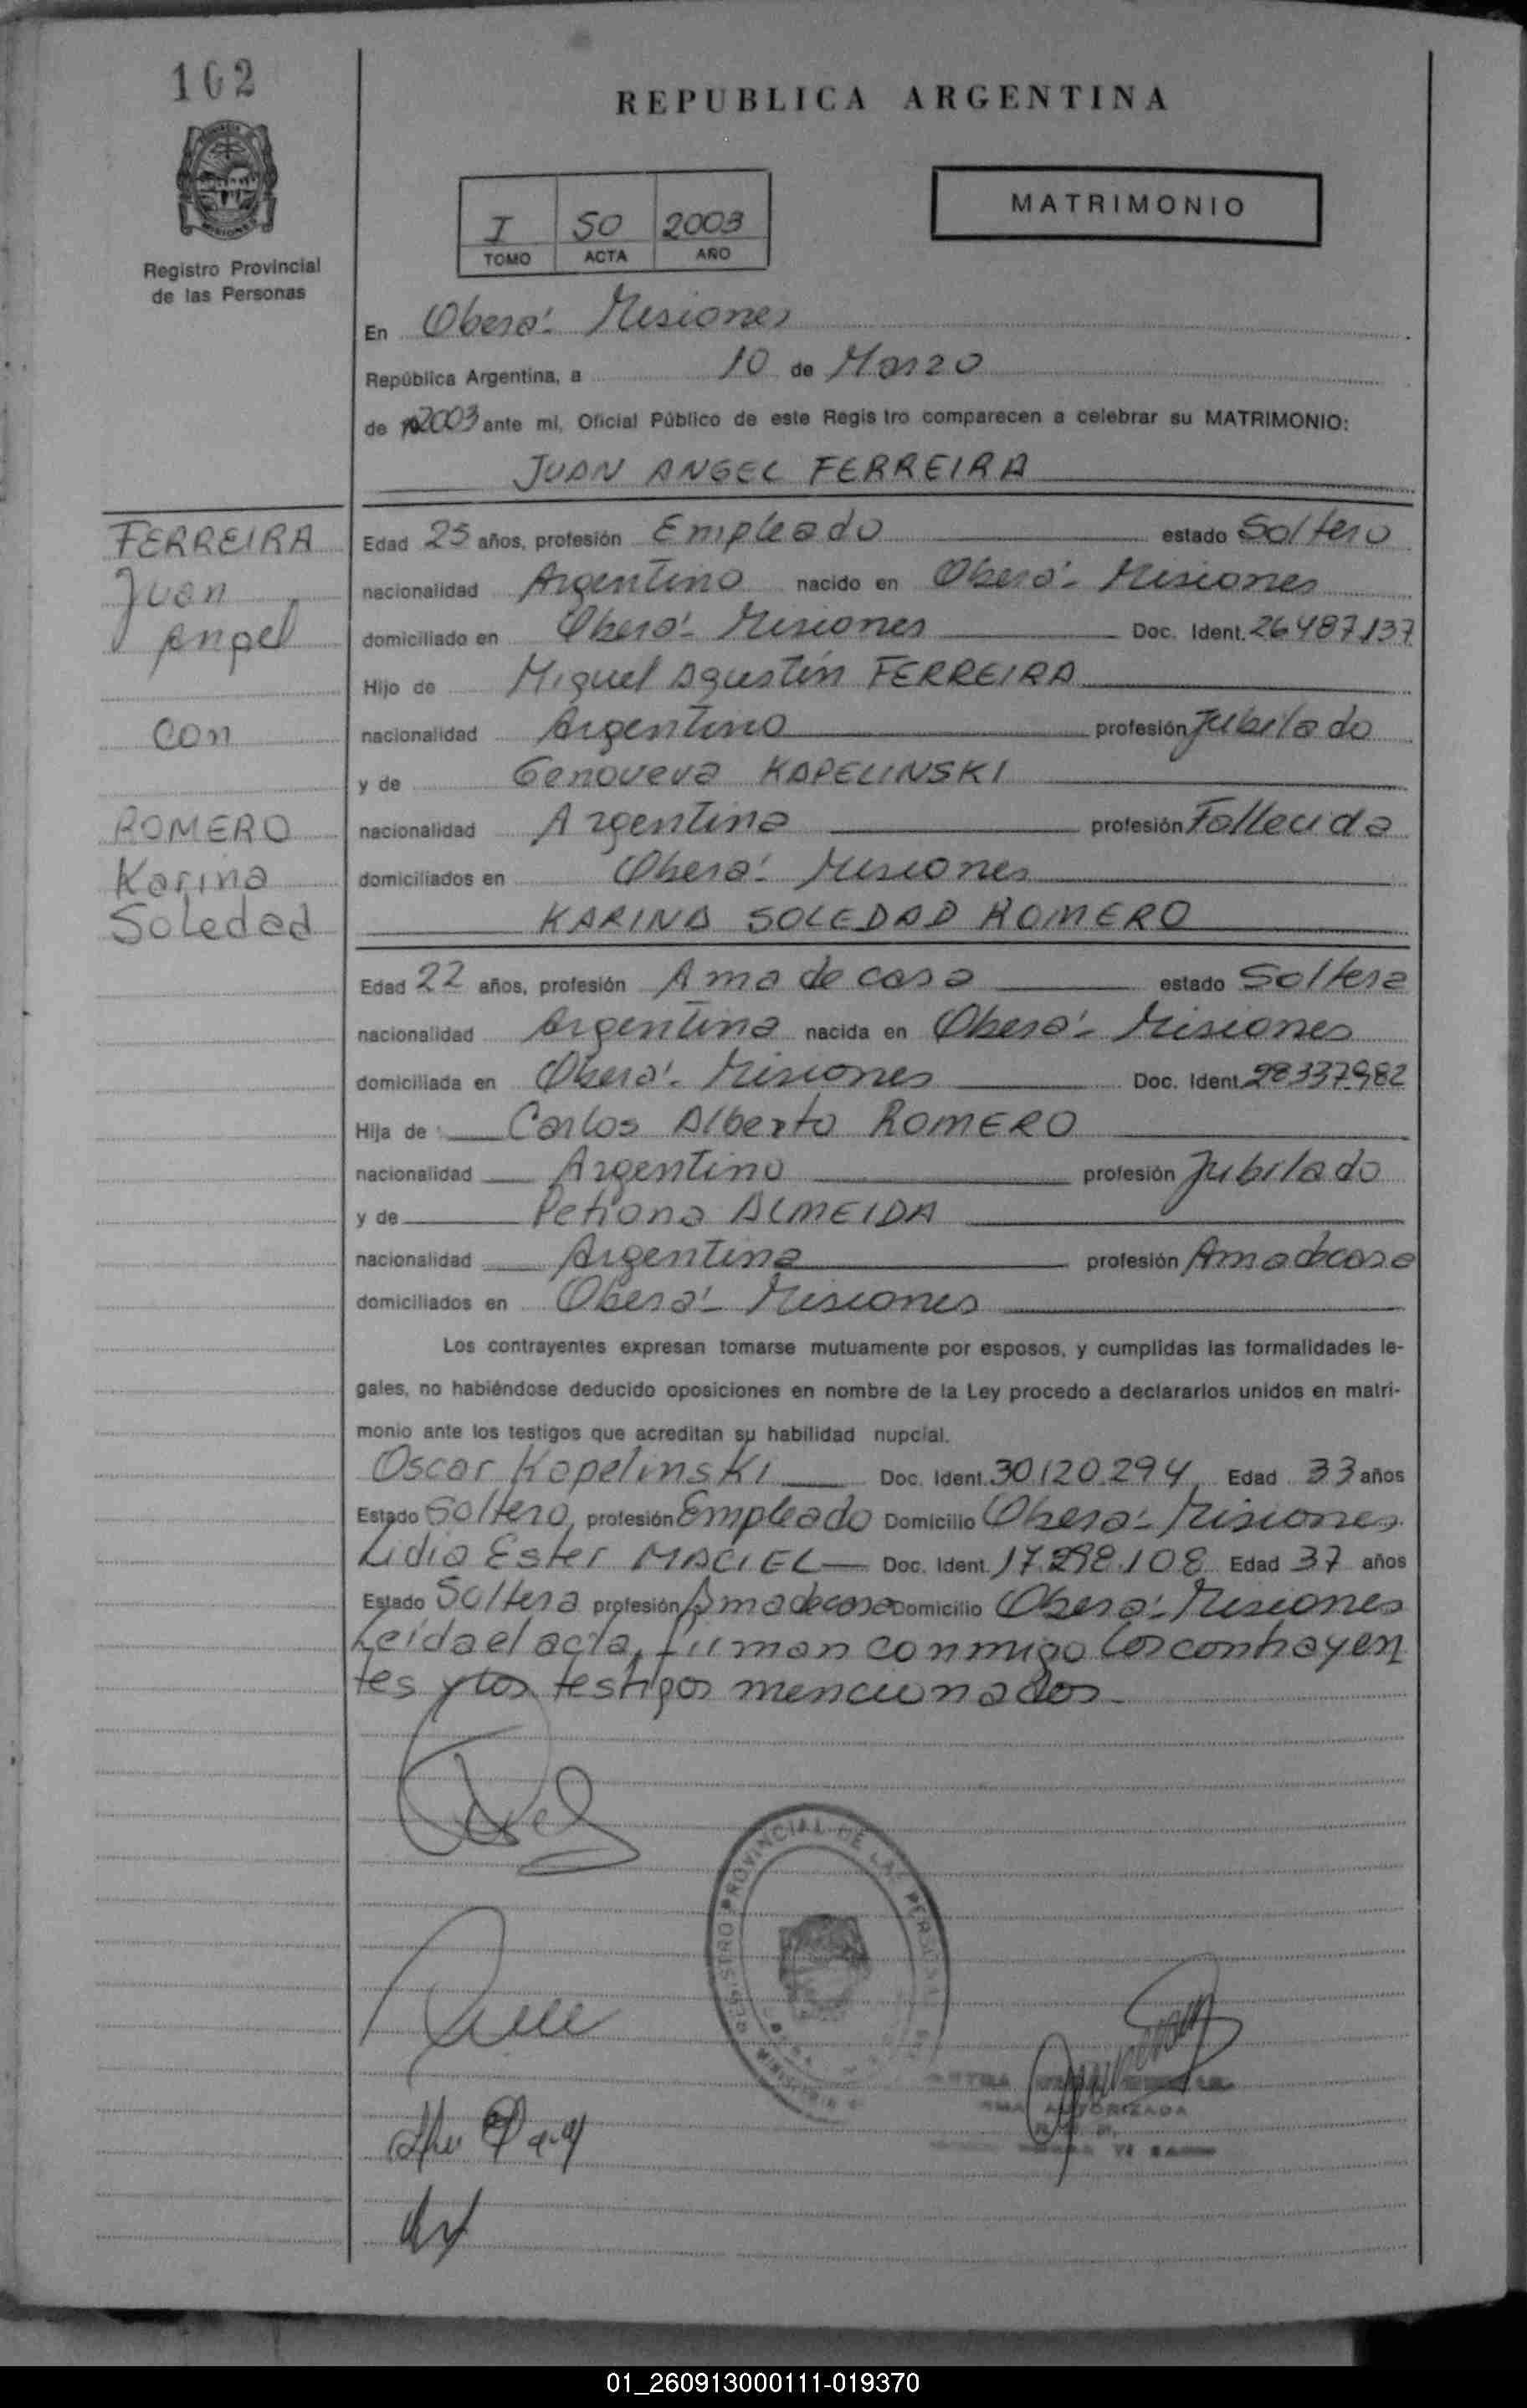 162
REPUBLICA ARGENTINA
MATRIMONIO
I 50 2003
TOMO ACTA AÑO
Registro Provincial
de las Personas
En Oberá - Misiones
República Argentina, a 10 de Marzo
de 2003 ante mi, Oficial Público de este Regis tro comparecen a celebrar su MATRIMONIO:
JUAN ANGEL FERREIRA
FERREIRA
Juan
Angel
con
ROMERO
Karina
Soledad
Edad 25 años, profesión Empleado estado Soltero
nacionalidad Argentino nacido en Oberá - Misiones
domiciliado en Oberá - Misiones Doc. Ident. 26.487.137
Hijo de Miguel Agustín FERREIRA
nacionalidad Argentino profesión Jubilado
y de Genoveva KAPELINSKI
nacionalidad Argentina profesión Fallecida
domiciliados en Oberá - Misiones
KARINA SOLEDAD ROMERO
Edad 22 años, profesión Ama de casa estado Soltera
nacionalidad Argentina nacida en Oberá - Misiones
domiciliada en Oberá - Misiones Doc. Ident. 28337982
Hija de Carlos Alberto ROMERO
nacionalidad Argentino profesión Jubilado
y de Petrona ALMEIDA
nacionalidad Argentina profesión Ama de casa
domiciliados en Oberá - Misiones
Los contrayentes expresan tomarse mutuamente por esposos, y cumplidas las formalidades le-
gales, no habiéndose deducido oposiciones en nombre de la Ley procedo a declararlos unidos en matri-
monio ante los testigos que acreditan su habilidad nupcial.
Oscar Kapelinski Doc. Ident. 30.120.294 Edad 33 años
Estado Soltero, profesión Empleado Domicilio Oberá - Misiones
Lidia Ester MACIEL Doc. Ident. 17.298.108 Edad 37 años
Estado Soltera profesión Ama de casa Domicilio Oberá - Misiones
Leída el acta, firman conmigo los contrayen
tes y los testigos mencionados
REGISTRO PROVINCIAL DE LAS PERSONAS
AUTORIZADA
01_260913000111-019370